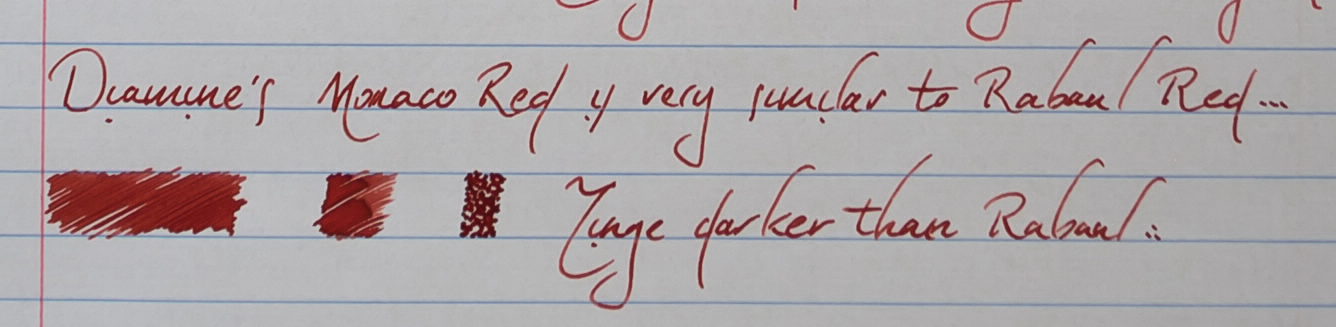 Diamine's Monaco Red is very similar to Rabaul Red...
Tinge darker than Rabaul..